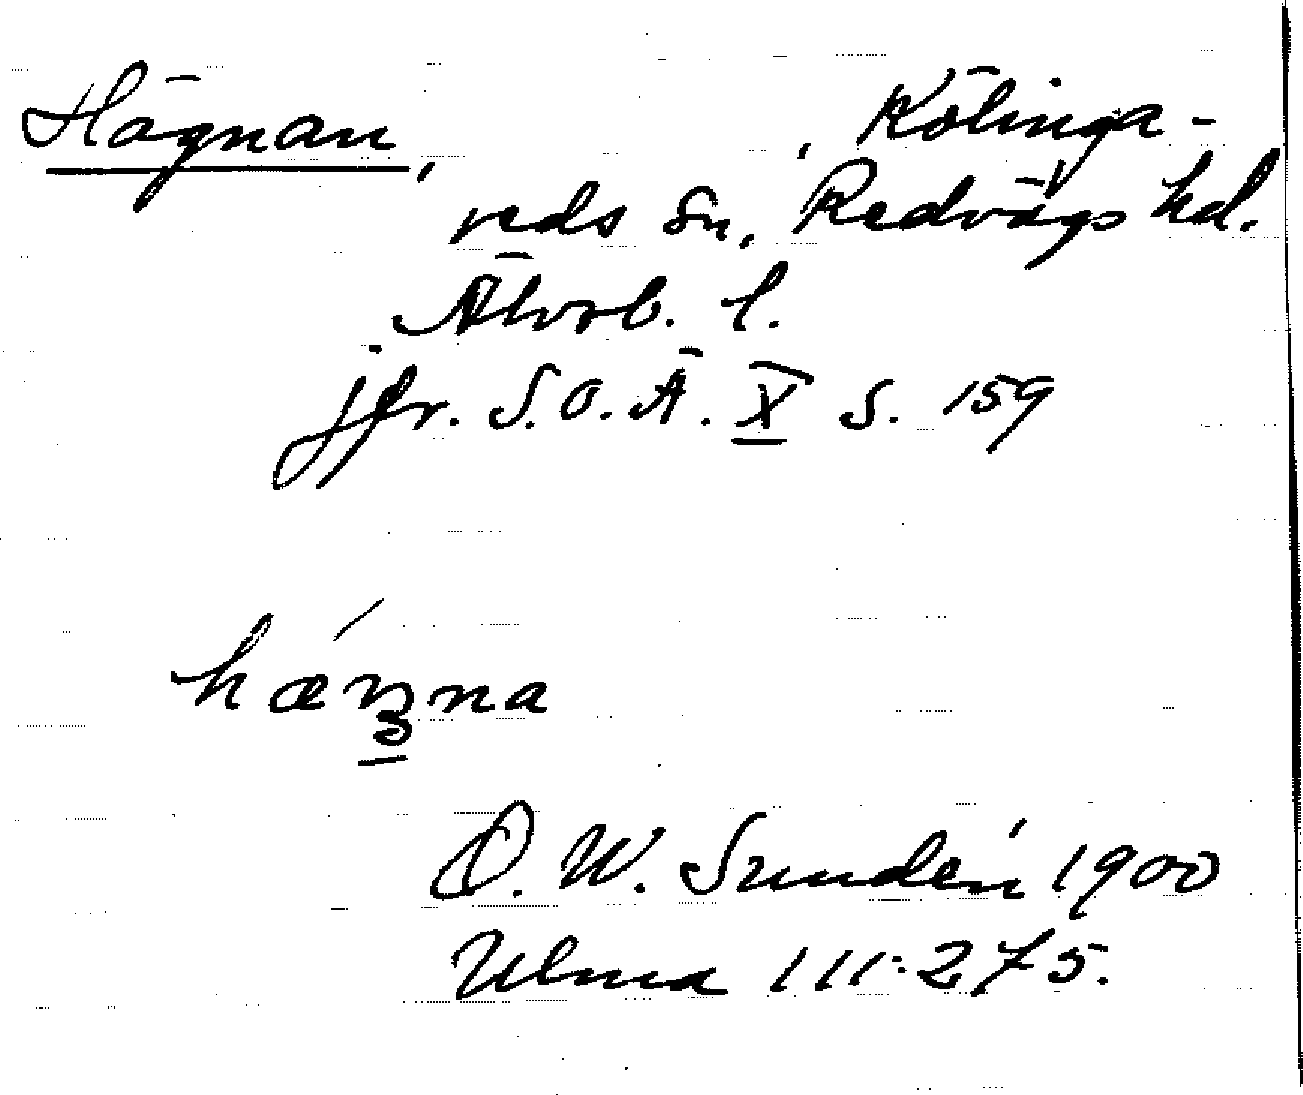 Hägnan, , Kölinga-
reds sn, Redvägs hd.
Älvsb. l.
jfr. S.O.Ä. X s. 159
hǽŋna
D. W. Sundén 1900
Ulma 111:275.